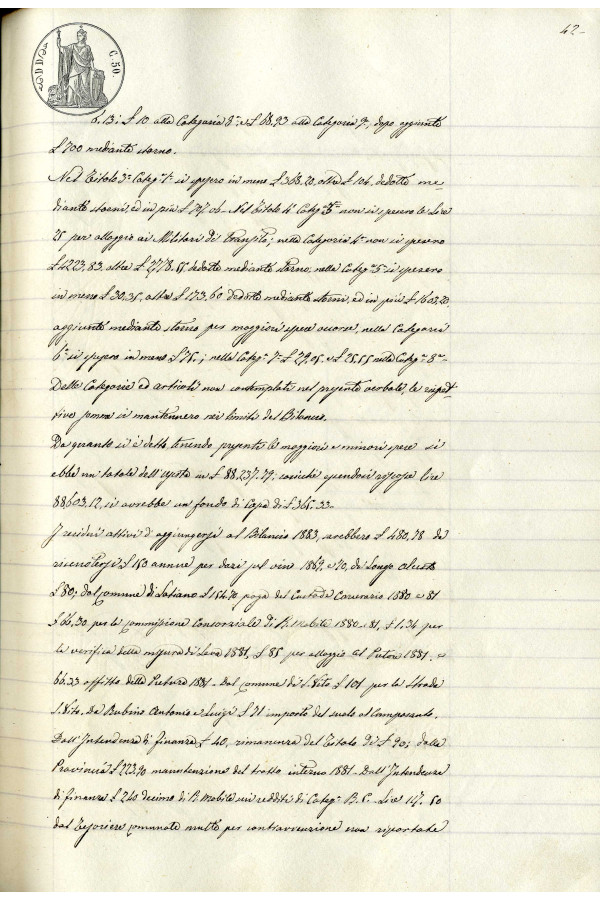 42-
C. 50.
6. 13; £ 10 alla Categoria 8ª e £ 68.93 alla Categoria 9ª, dopo aggiunte
£ 700 mediante storno.
Nel Titolo 3° Categ.ª 1ª si spesero in meno £ 368.20, oltre £ 104 dedotte me-
diante storni, ed in più £ Nel Titolo 4° Categ.ª 3ª non si spesero le Lire
25 per alloggio ai Militari di transito; nella Categoria 4ª non si spesero
£ 1223,83, oltre £ 2778.15 dedotte mediante storno, nella Categ.ª 5ª si spesero
in meno £ 30.35, oltre £ 173.60 dedotte mediante storni, ed in più £ 1603,20
aggiunte mediante storno per maggiori spese occorse, nella Categoria
6ª si spesero in meno £ 75.; nella Categ.ª 7ª £ 29,05 e £ 25,55 nella Categ.ª 8ª-
Delle Categorie ed articoli non contemplati nel presente verbale, le rispet-
tive somme si mantennero nei limiti del Bilancio.
Da quanto si è detto tenendo presenti le maggiori e minori spese si
ebbe un totale dell'uscita in £ 88.237.79; cosicché essendosi riscosse lire
88603.12, si avrebbe un fondo di Cassa di £ 365.33-
I residui attivi d'aggiungersi al Bilancio 1883, sarebbero £ 480,78 da
riscuotersi, £ 150 annue per dazi sul vino 1869 e 70, da Longo
£ 80; dal comune di Latiano £ 154.70 paga del Custode Carcerario 1880 e 81
£ 66,30 per la commissione Consorziale di R. Mobile 1880 e 81, £ 1.34 per
la verifica della misura di Leva 1881, £ 85 per alloggio al Pretore 1881. e
66.33 affitto della Pretura 1881- Dal comune di S. Vito £ 101 per la Strada
S. Vito. Da Rubino Antonio e Luigi £ 71 importo del suolo al Camposanto.
Dall'Intendenza di finanza £ 40, rimanenza del Titolo di £ 90; dalla
Provincia £ 223.90 manutenzione del tratto interno 1881- Dall'Intendenza
di finanza £ 240 decimo di R. Mobile sui redditi di Categ.ª B. C. Lire 147.50
dal Tesoriere comunale multe per contravvenzione non riportate